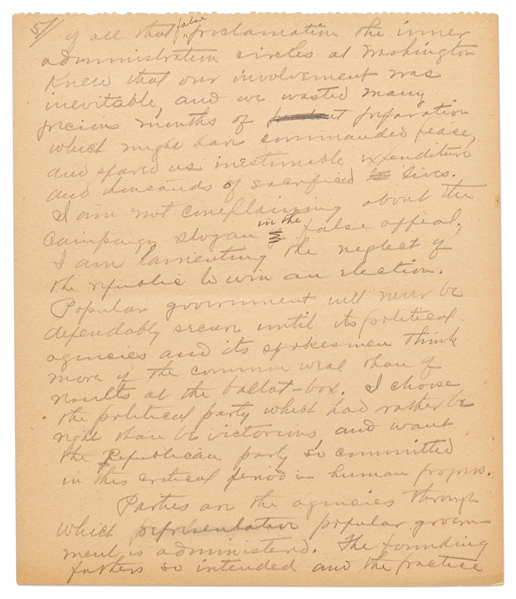 5/ of all that false proclamation the inner
administration circles at Washington
knew that our involvement was
inevitable, and we wasted many
precious months of preparation
which might have commanded peace,
and spared us inestimable expenditure
and thousands of sacrificed lives.
I am not complaining about the
campaign slogan in the false appeal.
I am lamenting the neglect of
the republic to win an election.
Popular government will never be
dependably secure until its political
agencies and its spokesmen think
more of the common weal than of
results at the ballot-box. I choose
the political party which had rather be
right than be victorious and want
the Republican party so committed
in this critical period in human progress.
Parties are the agencies through
which representative popular govern-
ment is administered. The founding
fathers so intended and the practice